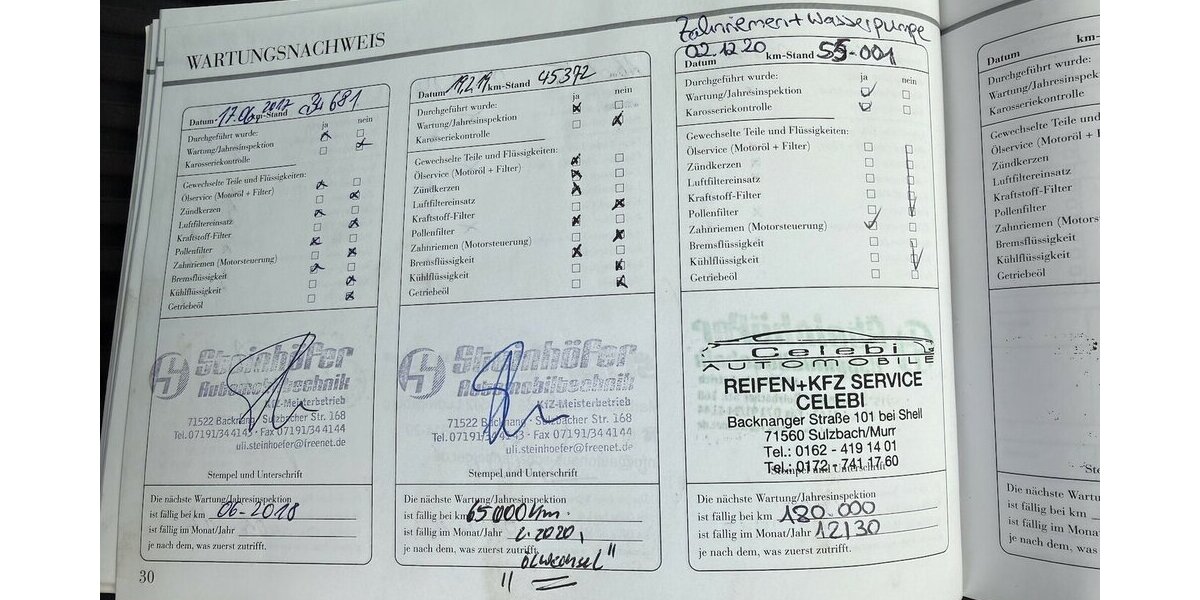 WARTUNGSNACHWEIS
17.06.2017
Datum km-Stand
ja nein
Durchgeführt wurde:
Wartung/Jahresinspektion
Karosseriekontrolle
Gewechselte Teile und Flüssigkeiten:
Ölservice (Motoröl + Filter)
Zündkerzen
Luftfiltereinsatz
Kraftstoff-Filter
Pollenfilter
Zahnriemen (Motorsteuerung)
Bremsflüssigkeit
Kühlflüssigkeit
Getriebeöl
Steinhöfer
Automobiltechnik
KfZ-Meisterbetrieb
71522 Backnang · Sulzbacher Str. 168
Tel. 07191/34 41 43 · Fax 07191/34 41 44
uli.steinhoefer@freenet.de
Stempel und Unterschrift
Die nächste Wartung/Jahresinspektion
ist fällig bei km 06-2018
ist fällig im Monat/Jahr
je nach dem, was zuerst zutrifft.
30
Datum km-Stand 45372
ja nein
Durchgeführt wurde:
Wartung/Jahresinspektion
Karosseriekontrolle
Gewechselte Teile und Flüssigkeiten:
Ölservice (Motoröl + Filter)
Zündkerzen
Luftfiltereinsatz
Kraftstoff-Filter
Pollenfilter
Zahnriemen (Motorsteuerung)
Bremsflüssigkeit
Kühlflüssigkeit
Getriebeöl
Steinhöfer
Automobiltechnik
KfZ-Meisterbetrieb
71522 Backnang · Sulzbacher Str. 168
Tel. 07191/34 41 43 · Fax 07191/34 41 44
uli.steinhoefer@freenet.de
Stempel und Unterschrift
Die nächste Wartung/Jahresinspektion
ist fällig bei km 65000 km.
ist fällig im Monat/Jahr 2.2020,
je nach dem, was zuerst zutrifft.
"Ölwechsel"
Zahnriemen + Wasserpumpe
02.12.20 55.001
Datum km-Stand
ja nein
Durchgeführt wurde:
Wartung/Jahresinspektion
Karosseriekontrolle
Gewechselte Teile und Flüssigkeiten:
Ölservice (Motoröl + Filter)
Zündkerzen
Luftfiltereinsatz
Kraftstoff-Filter
Pollenfilter
Zahnriemen (Motorsteuerung)
Bremsflüssigkeit
Kühlflüssigkeit
Getriebeöl
Celebi
AUTOMOBILE
REIFEN+KFZ SERVICE
CELEBI
Backnanger Straße 101 bei Shell
71560 Sulzbach/Murr
Tel.: 0162 - 419 14 01
Tel.: 0172 - 741 17 60
Stempel und Unterschrift
Die nächste Wartung/Jahresinspektion
ist fällig bei km 180.000
ist fällig im Monat/Jahr 12/30
je nach dem, was zuerst zutrifft.
Datum km-
Durchgeführt wurde:
Wartung/Jahresinspek
Karosseriekontrolle
Gewechselte Teile und
Ölservice (Motoröl +
Zündkerzen
Luftfiltereinsatz
Kraftstoff-Filter
Pollenfilter
Zahnriemen (Motors
Bremsflüssigkeit
Kühlflüssigkeit
Getriebeöl
Die nächste Wartu
ist fällig bei km
ist fällig im Monat
je nach dem, was